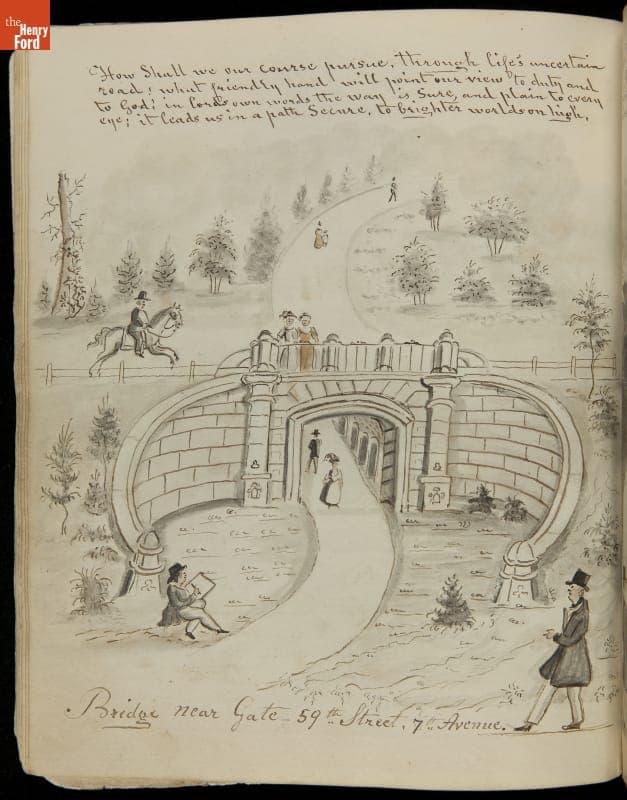 the
Henry
Ford
How Shall we our course pursue, through life's uncertain
road! what friendly hand will point our view to duty and
to God! in lords own words the way is Sure, and plain to every
eye; it leads us in a path Secure, to brighter worlds on high.
Bridge near Gate - 59th Street. 7th Avenue.